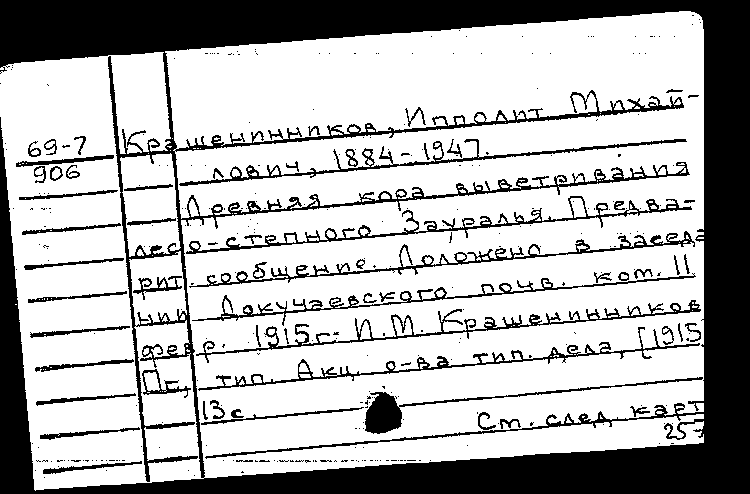 69-7
906
Крашенинников, Ипполит Михай-
лович, 1884-1947.
Древняя кора выветривания
лесо-степного Зауралья. Предва-
рит. сообщение. Доложено в заседа
нии Докучаевского почв. ком. 11
февр. 1915г. И.М. Крашенинников
Пг., тип. Акц. о-ва тип. дела, [1915
13 с.
См. след карт
25-7